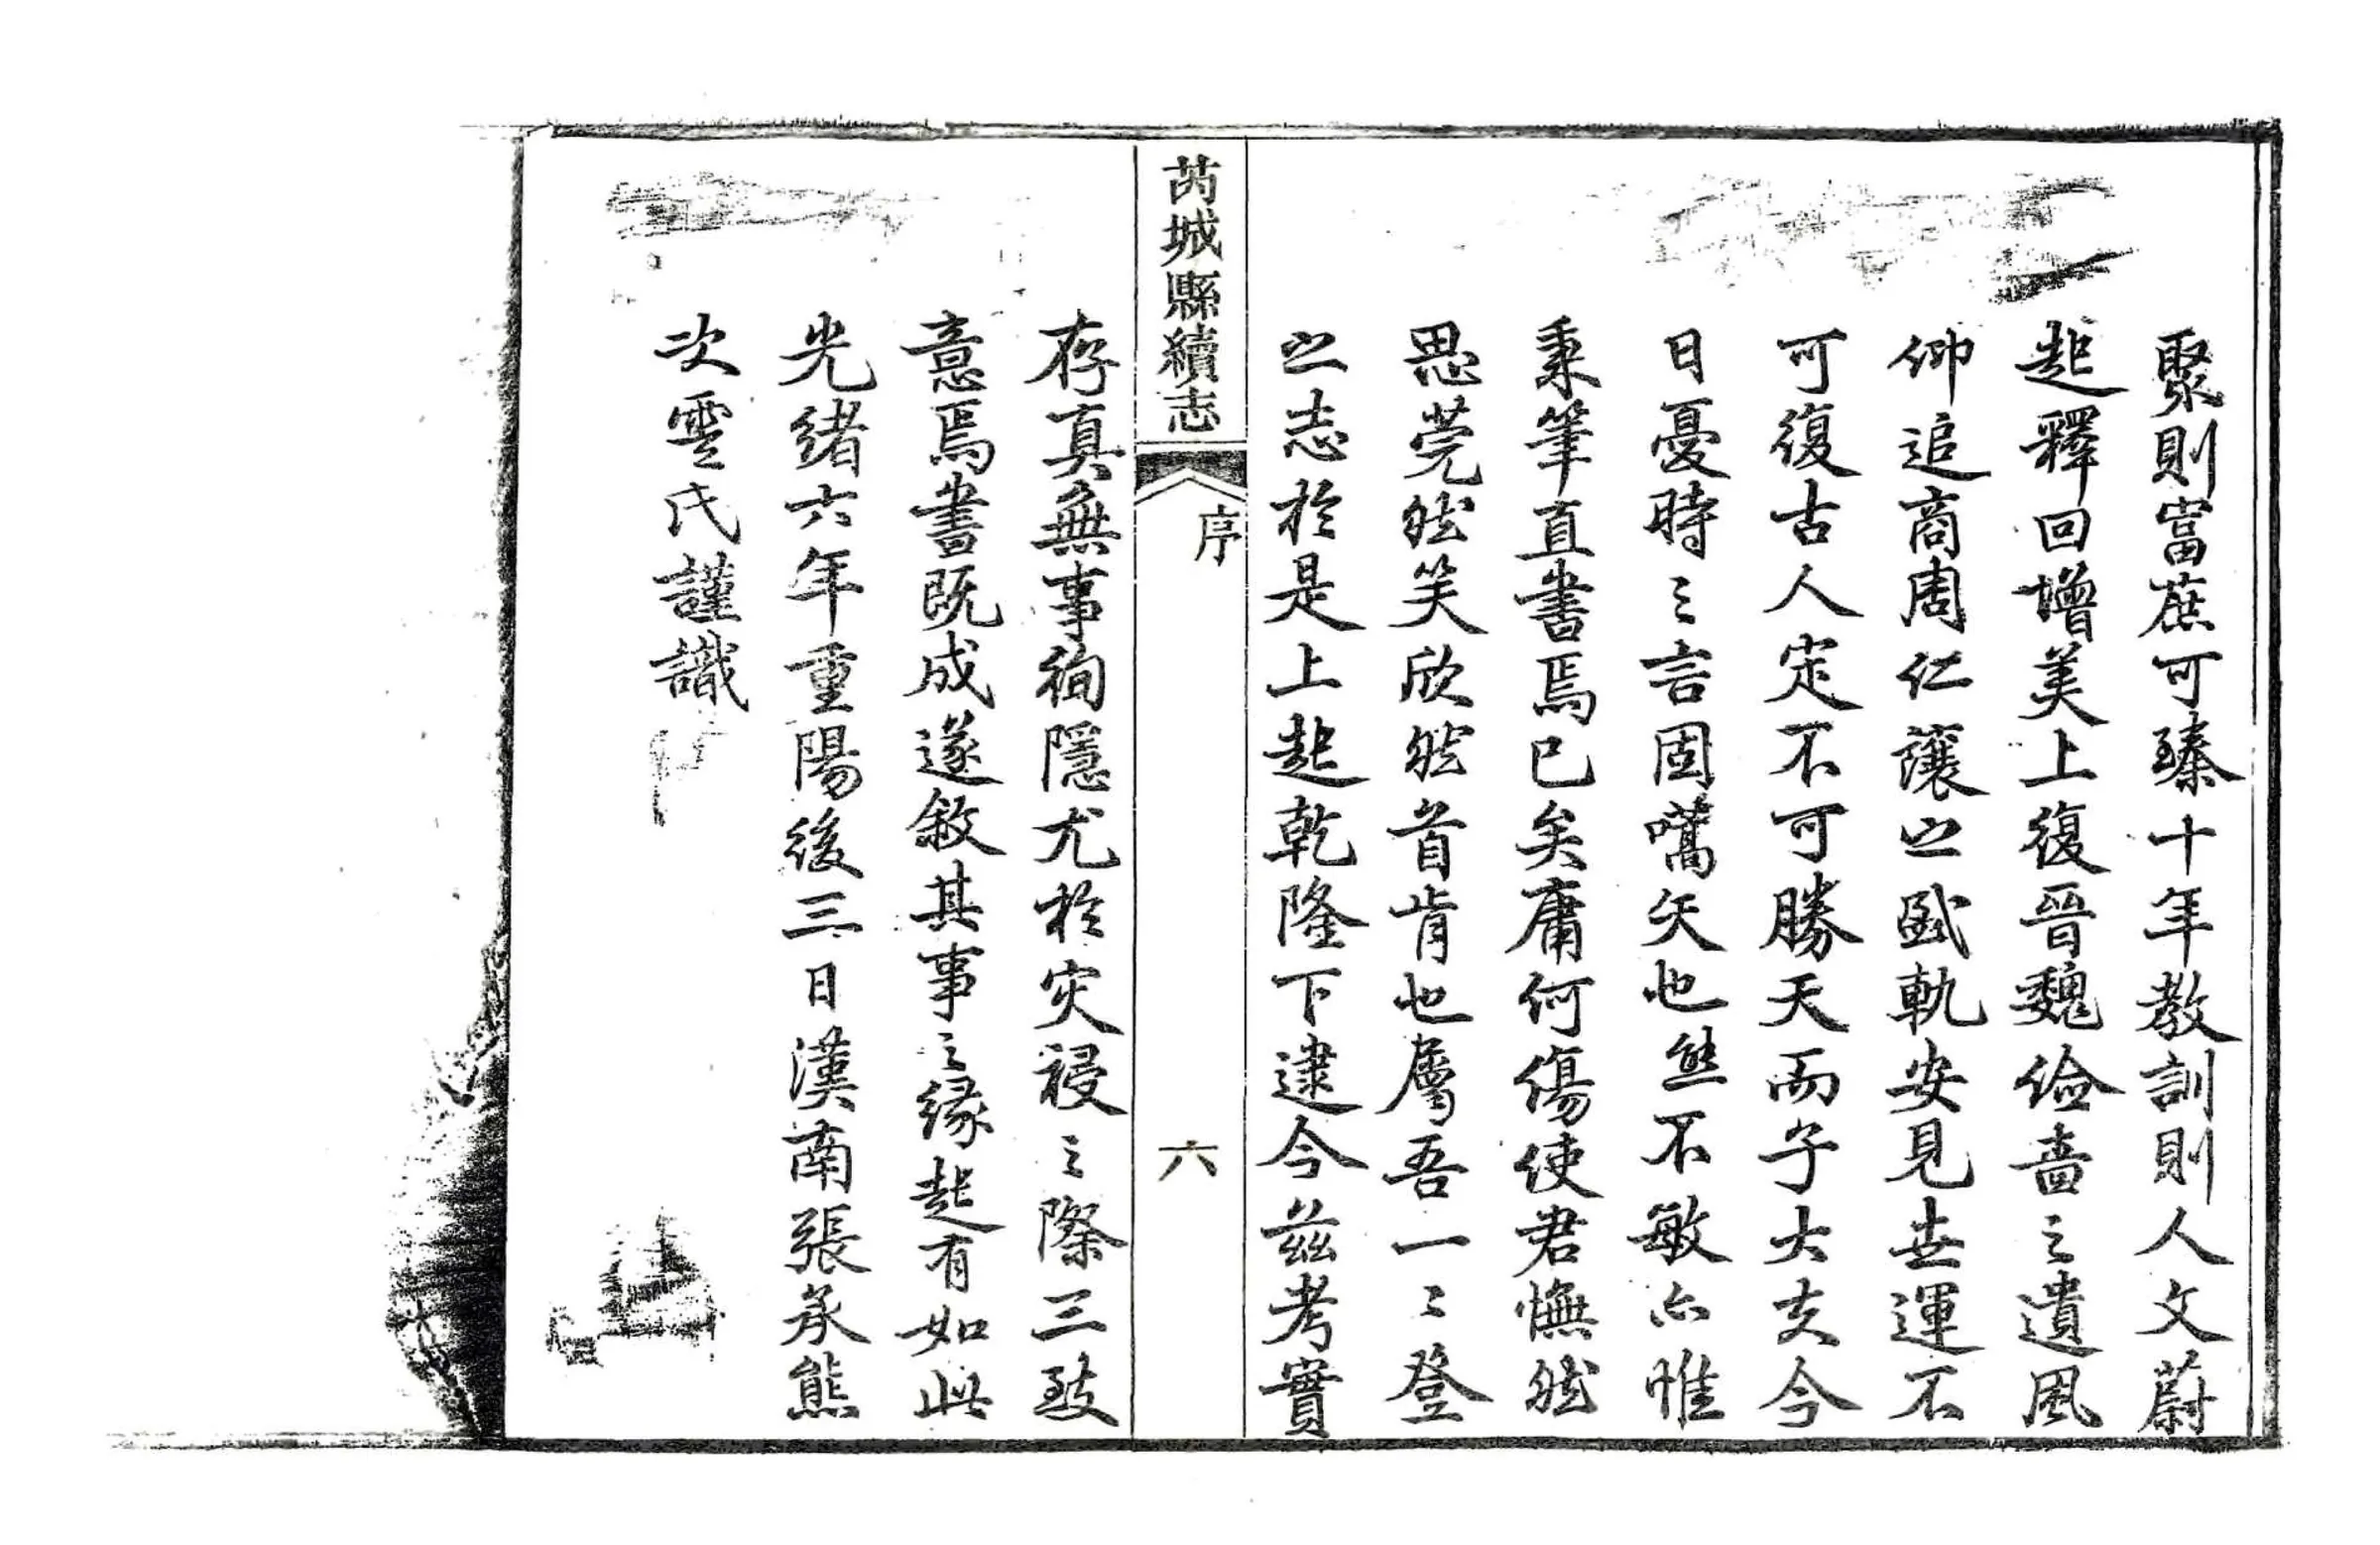 聚則富庶可臻十年教訓則人文蔚
起釋回增美上復晉魏儉嗇之遺風
仰追商周仁讓之盛軌安見世運不
可復古人定不可勝天而子大夫今
日憂時之言固嚆矢也然不敏亦惟
秉筆直書焉已矣庸何傷使君憮然
思莞然笑欣然首肯也屬吾一一登
之志於是上起乾隆下逮今茲考實
芮城縣續志
序
六
存真無事徇隱尤於灾祲之際三致
意焉書既成遂敘其事之緣起有如此
光緒六年重陽後三日漢南張承熊
次雲氏謹識